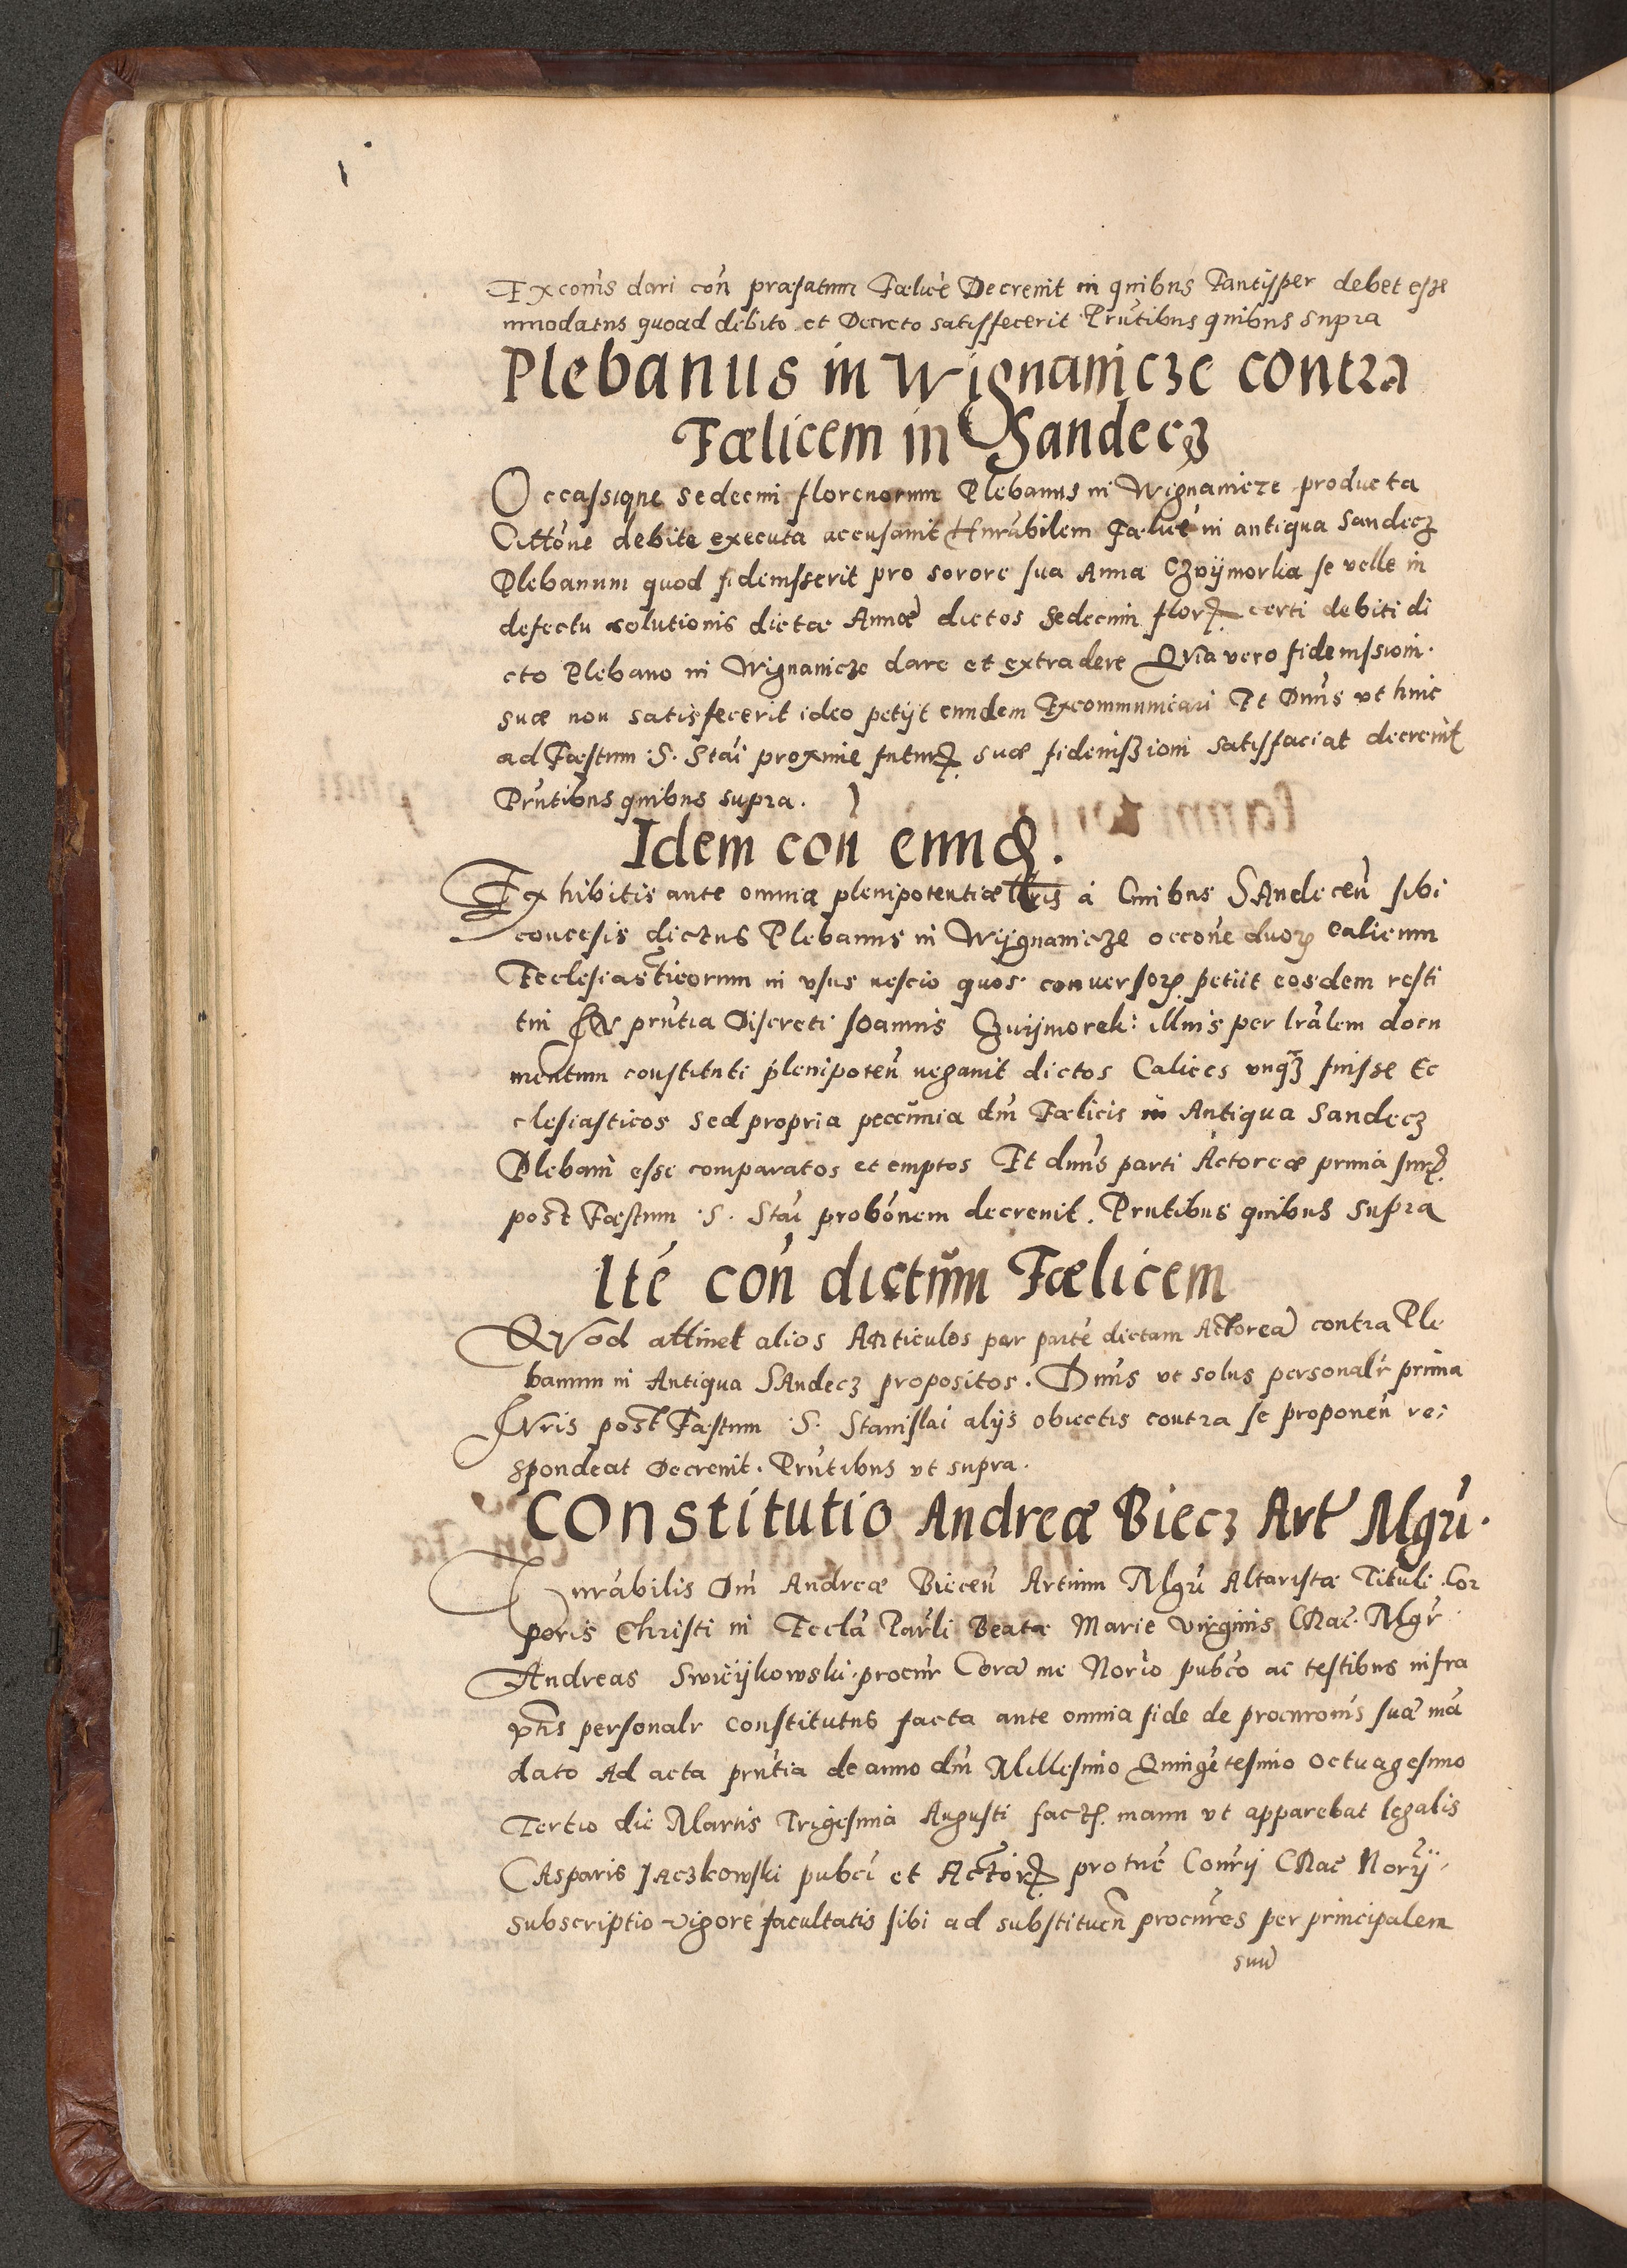 Excoñis dari coñ præfatum Fælicē Decrevit in quibus Tantisper debet esse
innodatus quoad debito et Decreto satisfecerit Prñtibus quibus supra
Plebanus in Wignanicze contra
Fælicem in Sandecz
Occassione sedecim florenorum Plebanus in Wignanicze producta
Citt̃one debite executa accusavit Hnrābilem Fælicē in antiqua Sandecz
Plebanum quod fideiusserit pro sorore sua Anna Czvijmorka se velle in
defectu solutionis dictæ Annæ dictos Sedecim florꝝ certi debiti di
cto Plebano in Wignanicze dare et extradere Quia vero fideiussioni
suæ non satisfecerit ideo petijt eundem Excommunicari Et Dñus ut hinc
ad Fæstum S. Stāi proxime futurꝝ suæ fideiuszioni satisfaciat decrevit
Prñtibus quibus supra.
Idem coñ eund.
Exhibitis ante omnia plenipotentiæ lr̃is á Civibus SAndeceñ sibi
concesis dictus Plebanus in Wijgnanicze occoñe duoꝝ calicum
Ecclesiasticorum in usus nescio quos conversoꝝ petiit eosdem resti
tui In prñtia Discreti Ioannis Czvijmorek: illius per lr̃alem docu
mentum constituti plenipoteñ negavit dictos Calices unqꝫ fuisse Ec
clesiasticos sed propria peccunia dñi Fælicis in Antiqua Sandecz
Plebani esse comparatos et emptos Et dñus parti Actoreæ prima Iurꝝ
post Fæstum S. Stāi probōnem decrevit. Prñtibus quibus supra
Itē coñ dictum Fælicem
Quod attinet alios Articulos per partē dictam Actoreā contra Ple
banum in Antiqua SAndecz propositos. Dñus ut solus personalr̃ prima
Iuris post Fæstum S. Stanislai alijs obiectis contra se proponeñ re:
spondeat Decrevit. Prñtibus ut supra.
Constitutio Andreæ Biecz Art Mgrĩ.
Hnrābilis Dñi Andreæ Bieceñ Artium Mgrĩ Altaristæ Tituli Cor
poris Christi in Ecclã Parlĩ Beatæ Marie Virginis CRac. Mgr̃
Andreas Swiċijkowski procur̃ Corā me Norĩo pubc̃o ac testibus infra
sptis personalr̃ constitutus facta ante omnia fide de procuroñis suæ mā
dato Ad acta prñtia de anno dñi Millesimo Quingētesimo octuagesimo
Tertio die Martis Trigesima Augusti factꝝ manu ut apparebat legalis
CAsparis JAczkowski pubc̃i et Actorꝝ protunc̃ Conrĩj CRac̃ Norĩj
Subscriptio vigore facultatis sibi ad substitueñ procur̃es per principalem
suū